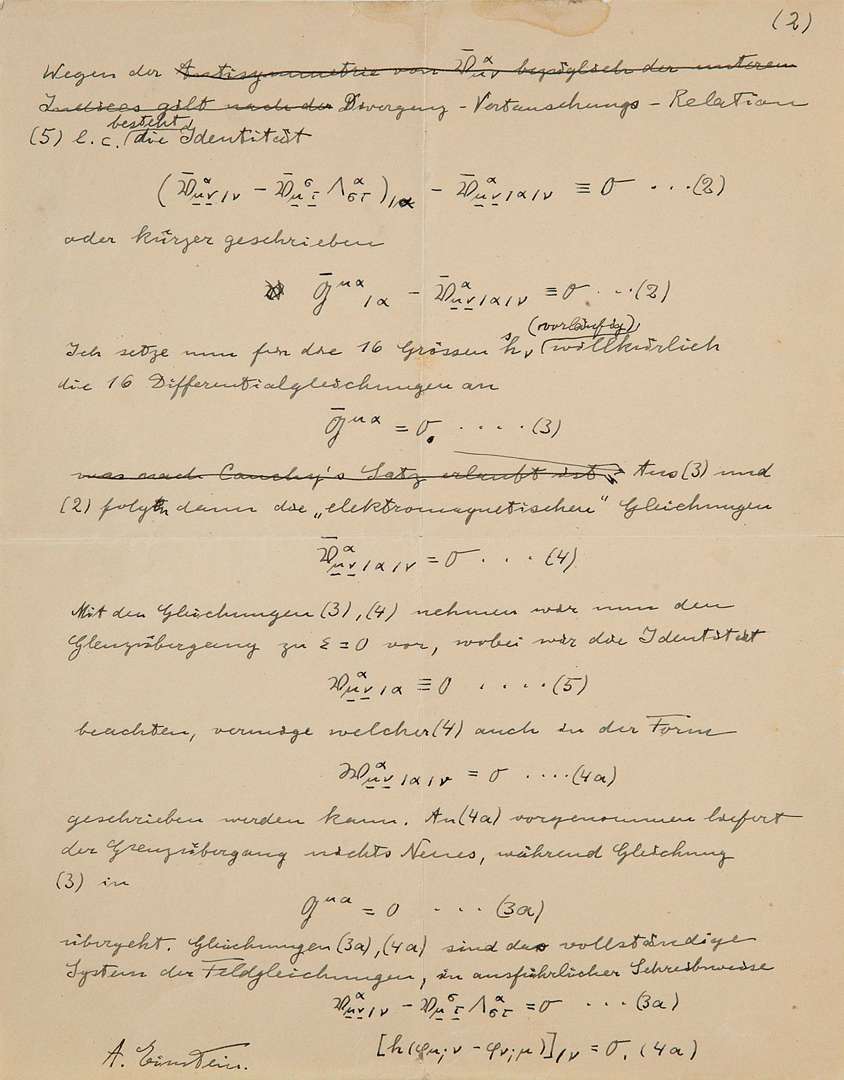 (2)
Wegen der Antisymmetrie von 𝔙̄^α_μν bezüglich der unteren
Indices gilt nach der Divergenz-Vertauschungs-Relation
besteht
(5) l.c. die Identität
(𝔙̄^α_μν/ν − 𝔙̄^σ_μτ Λ^α_στ)_/α − 𝔙̄^α_μν/α/ν ≡ 0 ...(2)
oder kürzer geschrieben
𝔊̄^μα_/α − 𝔙̄^α_μν/α/ν ≡ 0 ...(2)
(vorläufig)
Ich setze nun für die 16 Grössen ^sh_ν willkürlich
die 16 Differentialgleichungen an
𝔊̄^μα = 0. ....(3)
was nach Cauchy's Satz erlaubt ist. Aus (3) und
(2) folgen dann die „elektromagnetischen" Gleichungen
𝔙̄^α_μν/α/ν = 0 ...(4)
Mit den Gleichungen (3), (4) nehmen wir nun den
Grenzübergang zu ε = 0 vor, wobei wir die Identität
𝔙^α_μν/α ≡ 0 ....(5)
beachten, vermöge welcher (4) auch in der Form
𝔙^α_μν/α/ν = 0 ....(4a)
geschrieben werden kann. An (4a) vorgenommen liefert
der Grenzübergang nichts Neues, während Gleichung
(3) in
G^μα = 0 ...(3a)
übergeht. Gleichungen (3a), (4a) sind das vollständige
System der Feldgleichungen, in ausführlicher Schreibweise
𝔙^α_μν/ν − 𝔙^σ_μτ Λ^α_στ = 0 ...(3a)
[h(φ_μ;ν − φ_ν;μ)]_/ν = 0. (4a)
A. Einstein.